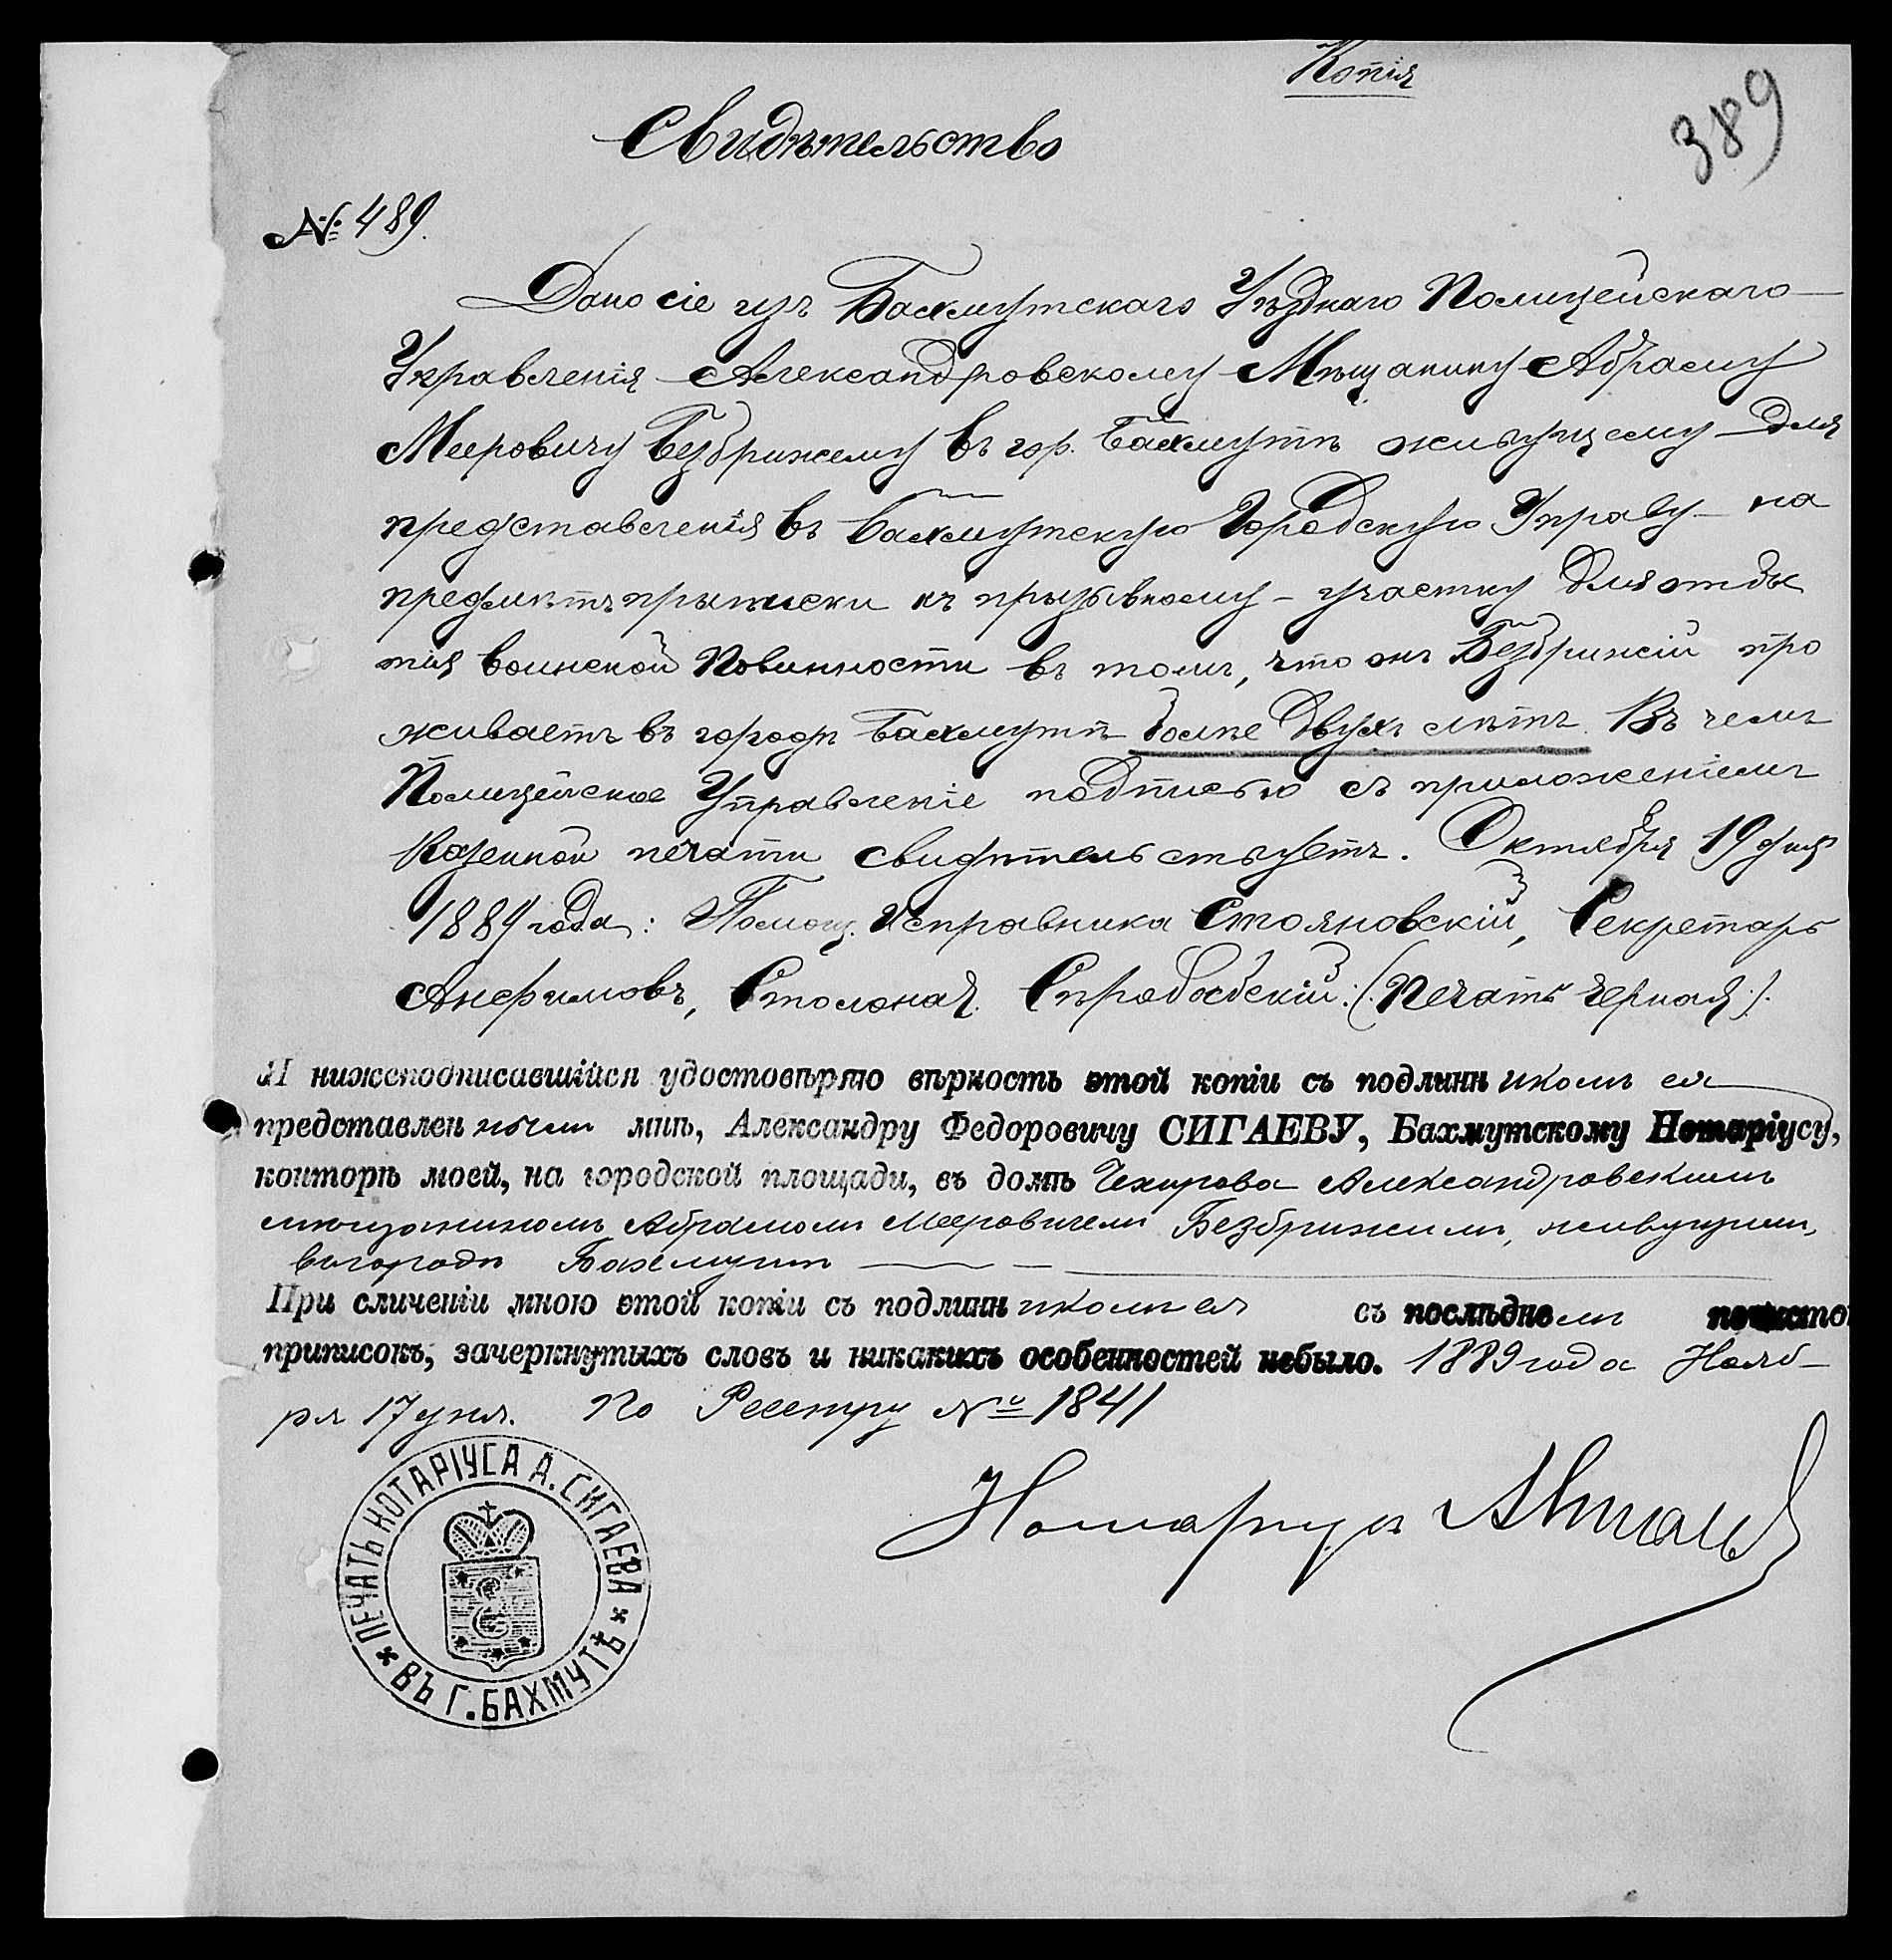 Копія
389
Свидѣтельство
№ 489.
Дано сіе изъ Бахмутскаго Уѣзднаго Полицейскаго
Управленія Александровскому Мѣщанину Абраму
Мееровичу Безбрижему въ гор. Бахмутѣ живущему для
представленія въ Бахмутскую Городскую Управу на
предметъ приписки къ призывному участку для отбы
тія воинской Повинности въ томъ, что онъ Безбрижій про
живаетъ въ городѣ Бахмутѣ болѣе двухъ лѣтъ. Въ чемъ
Полицейское Управленіе подписью съ приложеніемъ
Казенной печати свидѣтельствуетъ. Октября 19 дня
1889 года: Помощ. Исправника Стояновскій, Секретарь
Анфимовъ, Столонач. (Печать черная).
Я нижеподписавшійся удостовѣряю вѣрность этой копіи съ подлинникомъ ея
представленнымъ мнѣ, Александру Федоровичу СИГАЕВУ, Бахмутскому Нотаріусу,
конторѣ моей, на городской площади, въ домѣ Чехирова Александровскимъ
мѣщаниномъ Абрамомъ Мееровичемъ Безбрижимъ, живущимъ
въ городѣ Бахмутѣ
При сличеніи мною этой копіи съ подлинникомъ ея съ послѣднемъ
приписокъ, зачеркнутыхъ словъ и никакихъ особенностей небыло. 1889 года Нояб-
ря 17 дня. По Реестру № 1841
Нотаріусъ АСигаевъ
ПЕЧАТЬ НОТАРІУСА А. СИГАЕВА
ВЪ Г. БАХМУТѢ